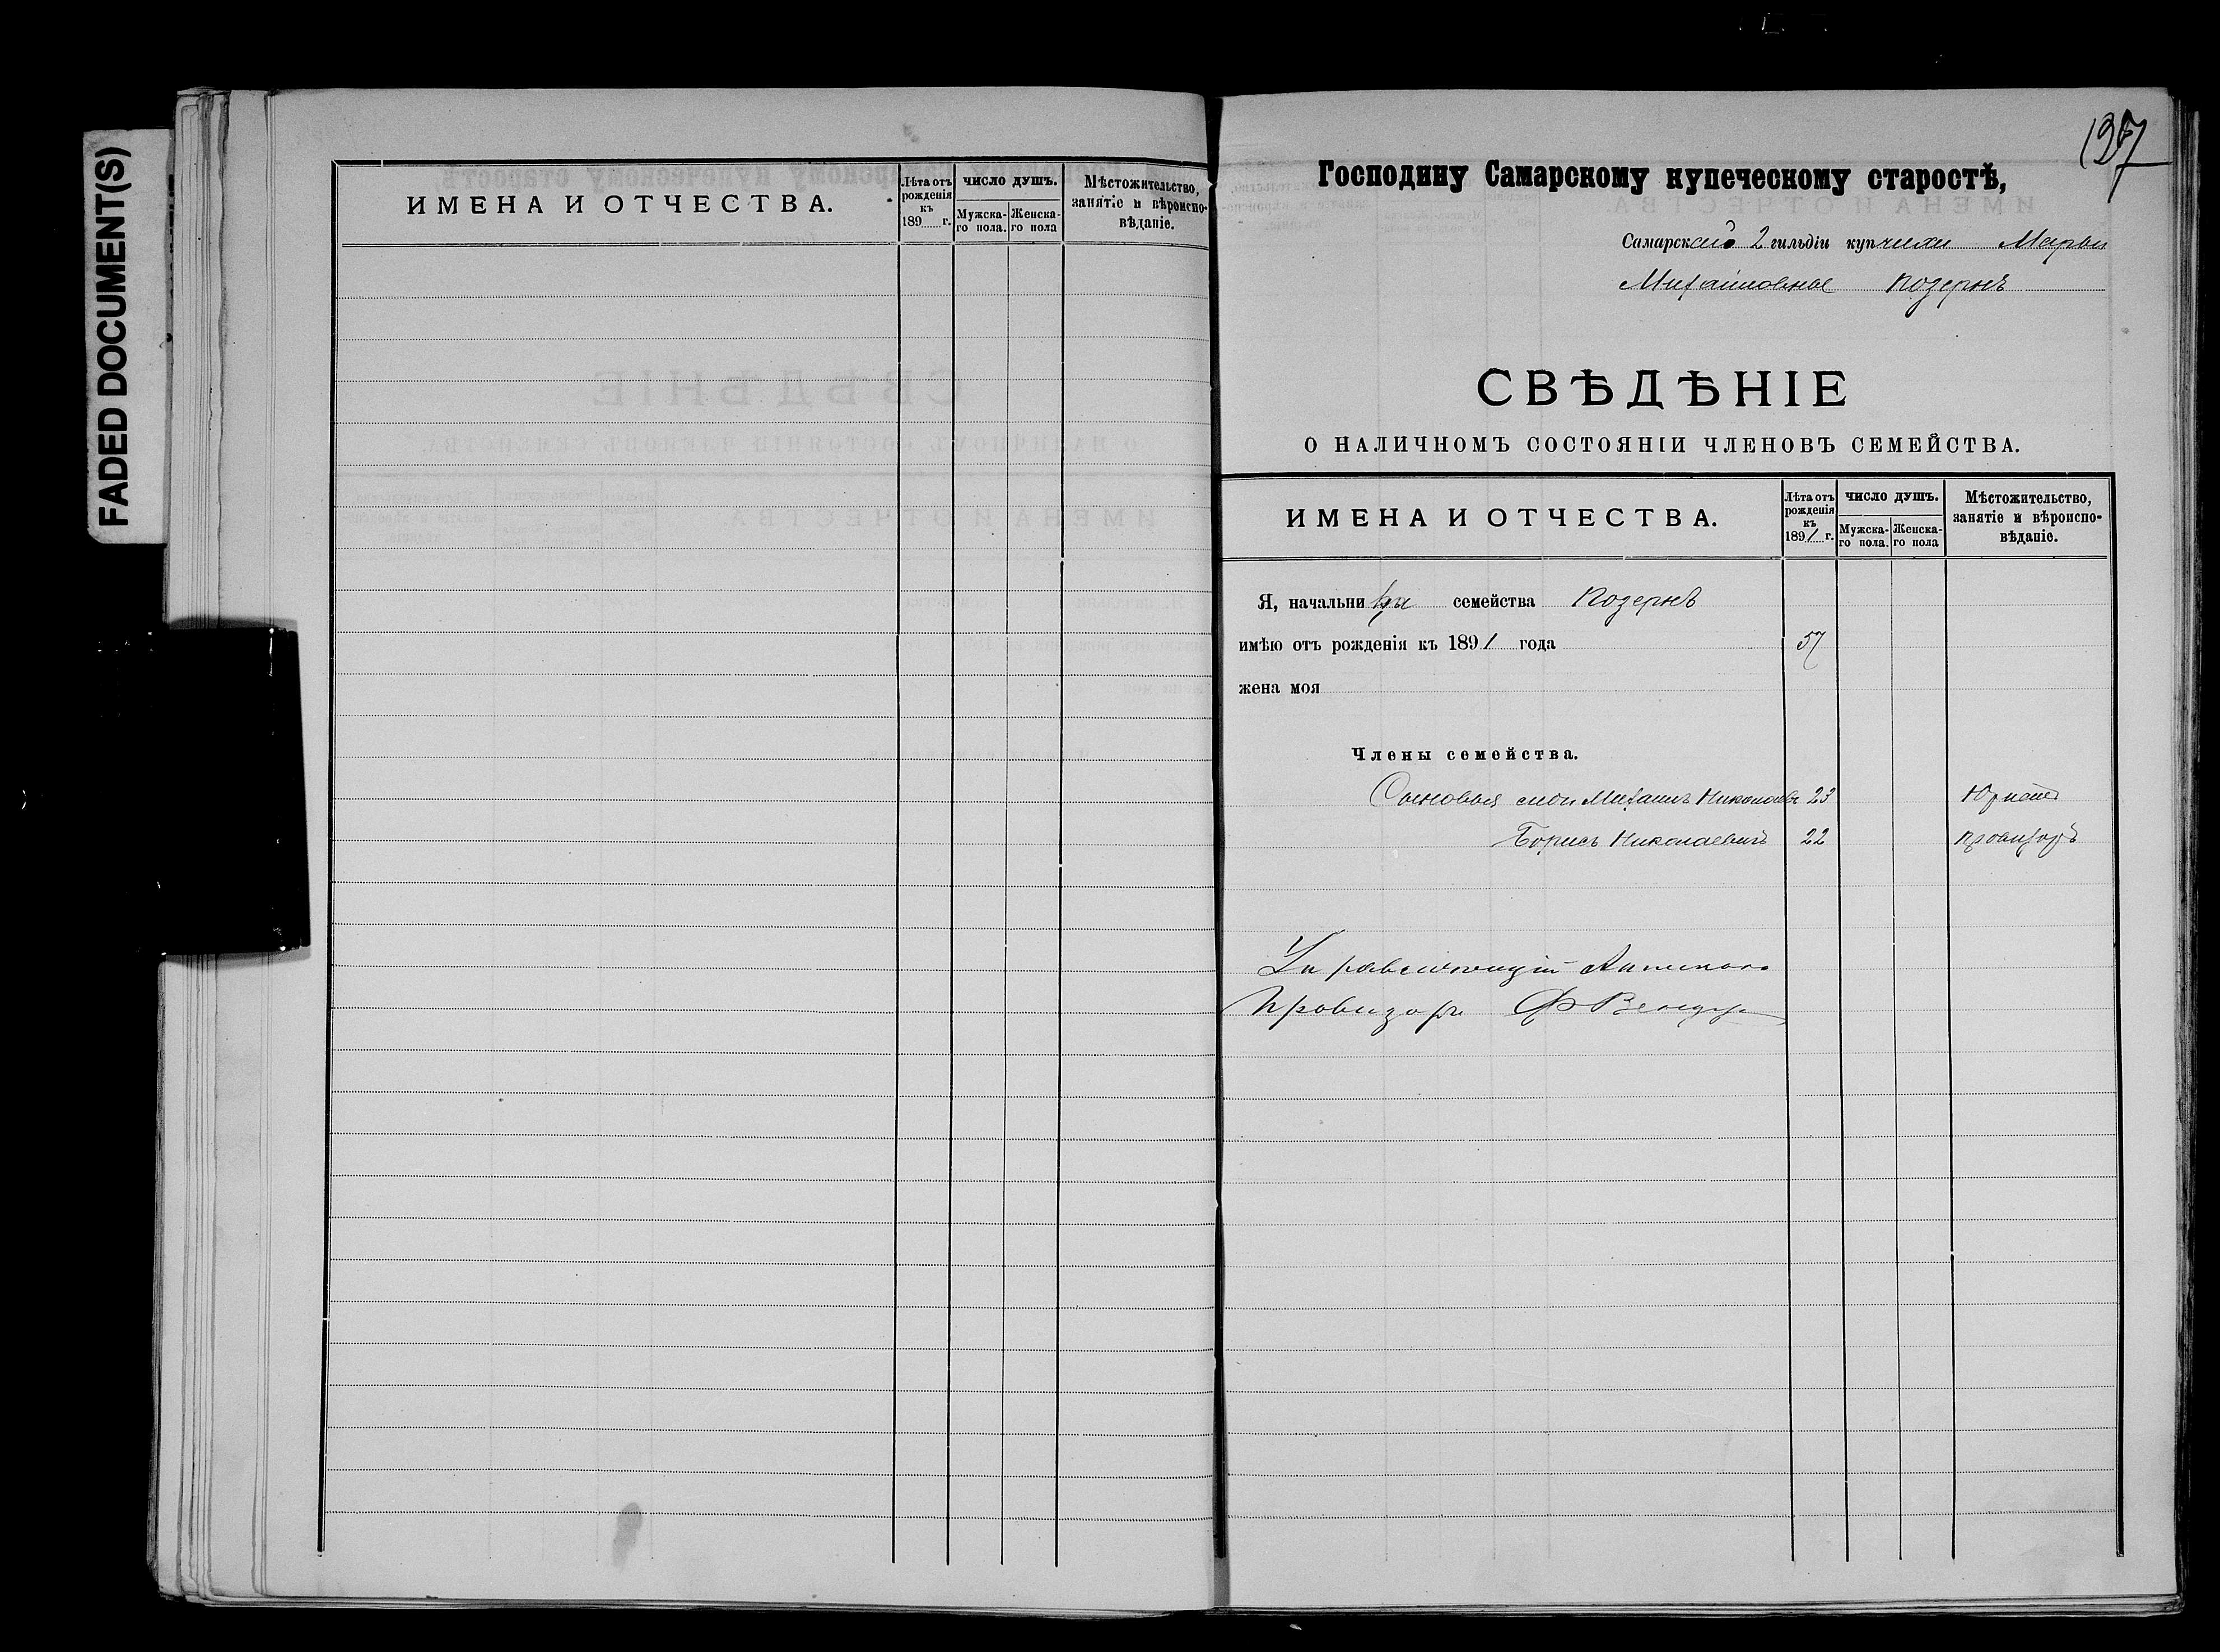 FADED DOCUMENT(S)
ИМЕНА И ОТЧЕСТВА.
Лѣта отъ рожденія къ 189 г.
ЧИСЛО ДУШЪ.
Мужска-го пола.
Женска-го пола
Мѣстожительство, занятіе и вѣроиспо-вѣданіе.
197
Господину Самарскому купеческому старостѣ,
Самарской 2 гильдіи купчихи Марьи
Михайловны Позернъ
СВѢДѢНІЕ
О НАЛИЧНОМЪ СОСТОЯНІИ ЧЛЕНОВЪ СЕМЕЙСТВА.
ИМЕНА И ОТЧЕСТВА.
Лѣта отъ рожденія къ 1891 г.
ЧИСЛО ДУШЪ.
Мужска-го пола.
Женска-го пола
Мѣстожительство, занятіе и вѣроиспо-вѣданіе.
Я, начальница семейства Позернъ
имѣю отъ рожденія къ 1891 года 57
жена моя
Члены семейства.
Сыновья мои Михаилъ Николаевъ 23 Юристъ
Борисъ Николаевичъ 22 провизоръ
Управляющій Аптекою
Провизоръ Ф